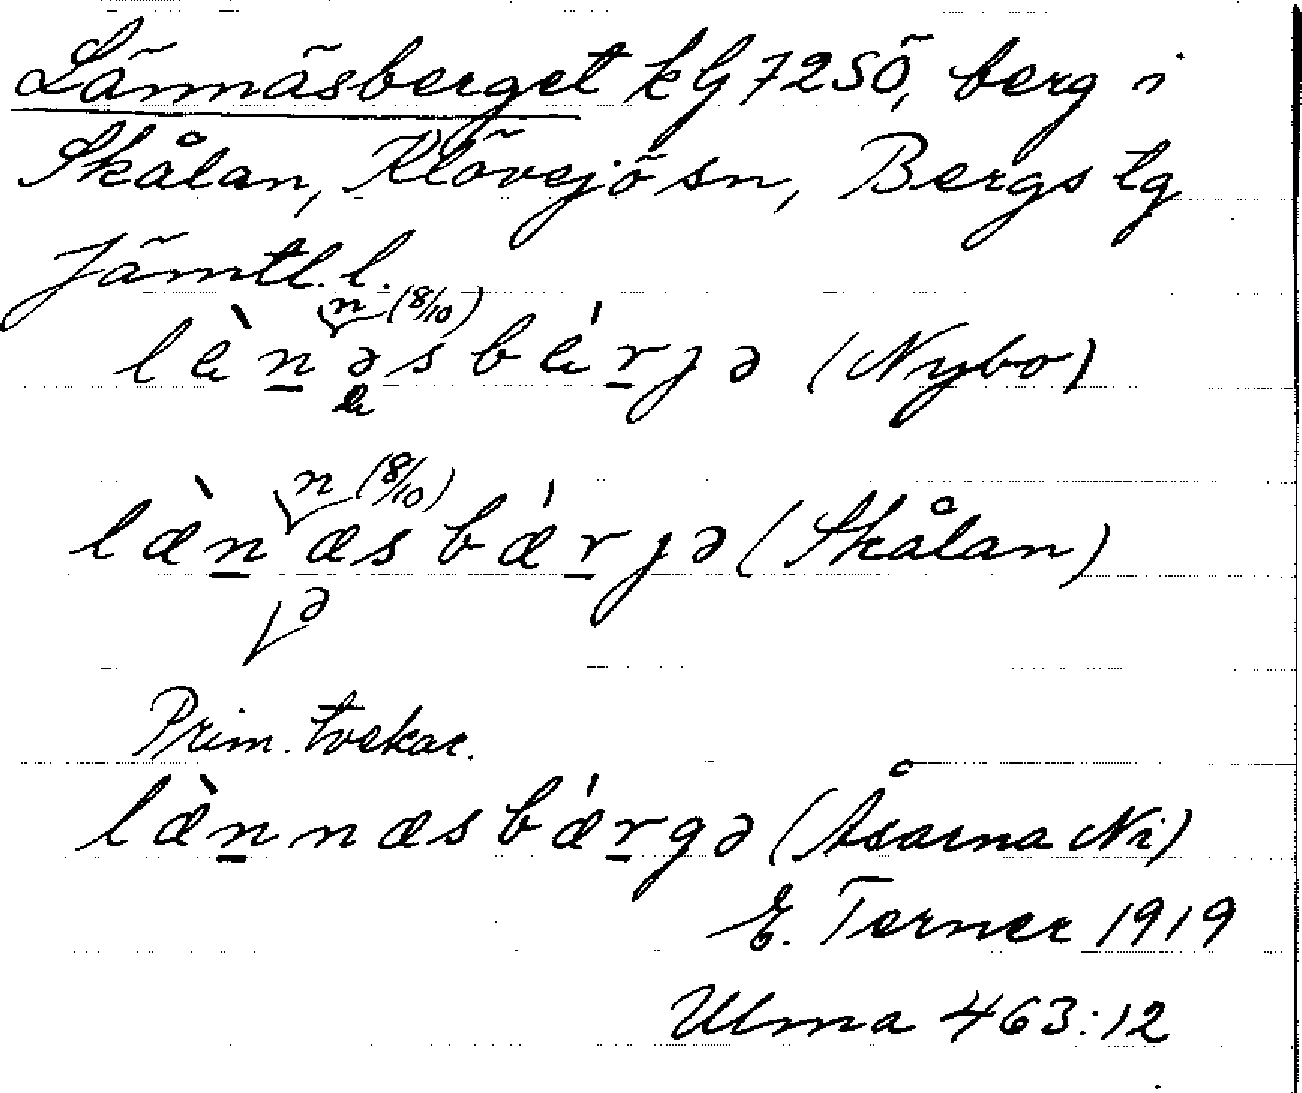 Lännäsberget kG 72SÖ, berg i
Skålan, Klövsjö sn, Bergs tg
Jämtl. l.
n (8/10)
lènəsbérjə (Nybo)
n (8/10)
læ̀næsbǽrjə (Skålan)
ə
Prim. tvekar.
læ̀nnæsbǽrgə (Åsarna Ni)
E. Terner 1919
Ulma 463:12